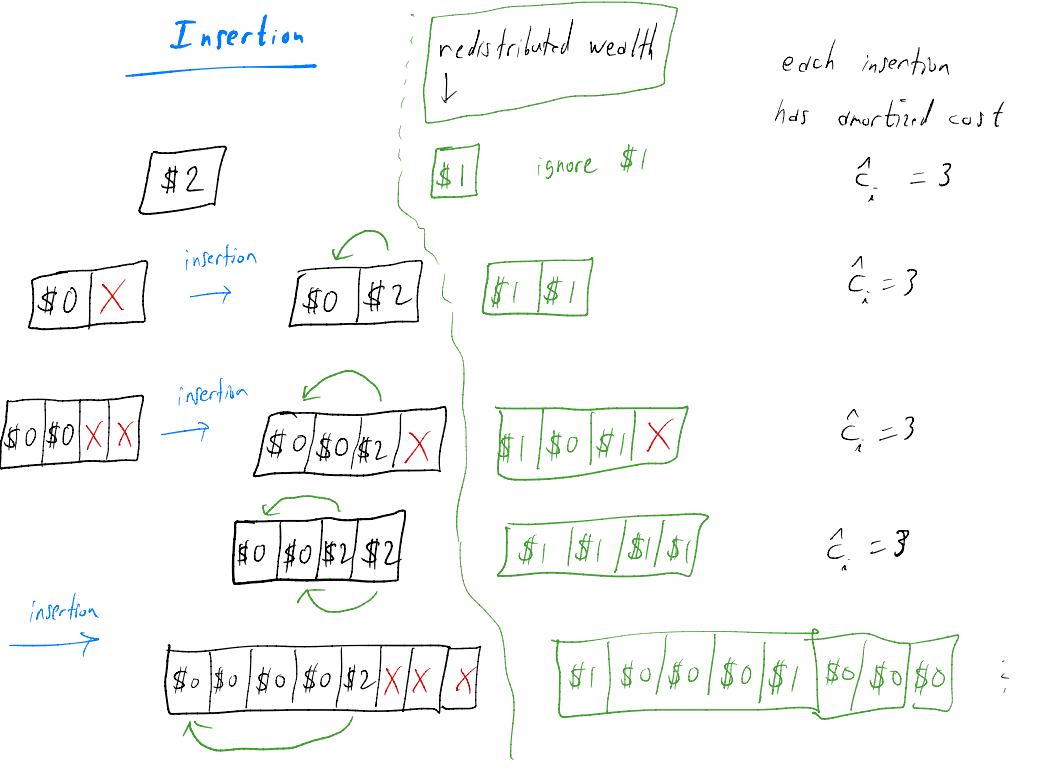 Insertion
redistributed wealth
↓
each insertion
has amortized cost
$2
$1 ignore $1
ĉᵢ = 3
$0 X
insertion
→
$0 $2
$1 $1
ĉᵢ = 3
$0 $0 X X
insertion
→
$0 $0 $2 X
$1 $0 $1 X
ĉᵢ = 3
$0 $0 $2 $2
$1 $1 $1 $1
ĉᵢ = 3
insertion
→
$0 $0 $0 $0 $2 X X X
$1 $0 $0 $0 $1 $0 $0 $0
⋮